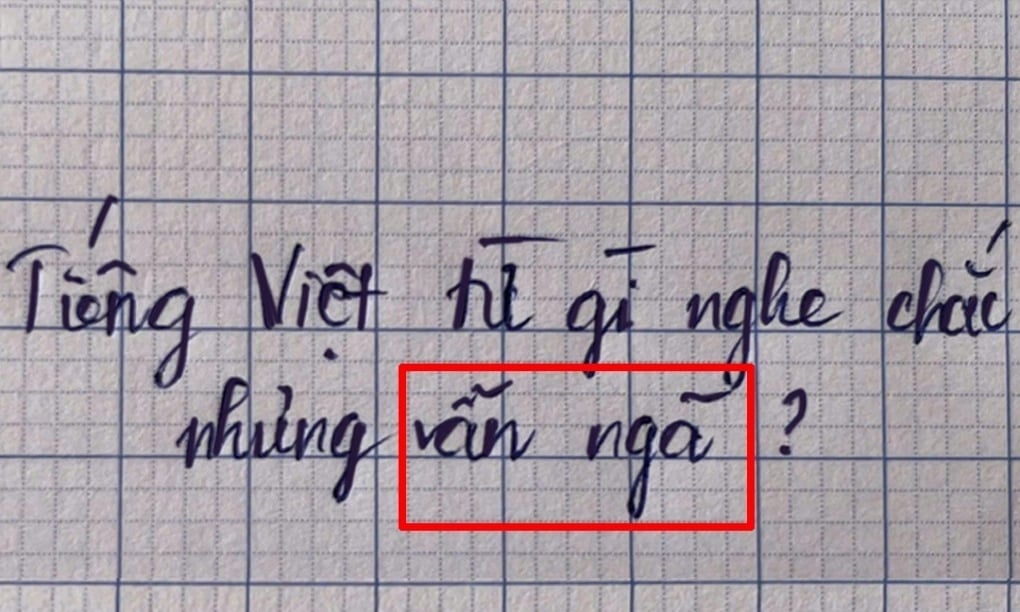 Tiếng Việt từ gì nghe chắc
nhưng vẫn ngã ?